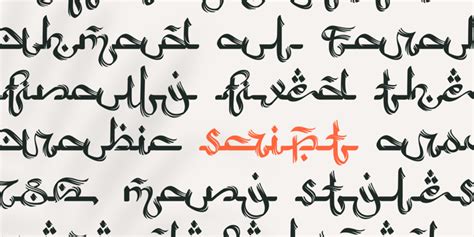 ahmad al
finally fixed the
arabic script
many styles